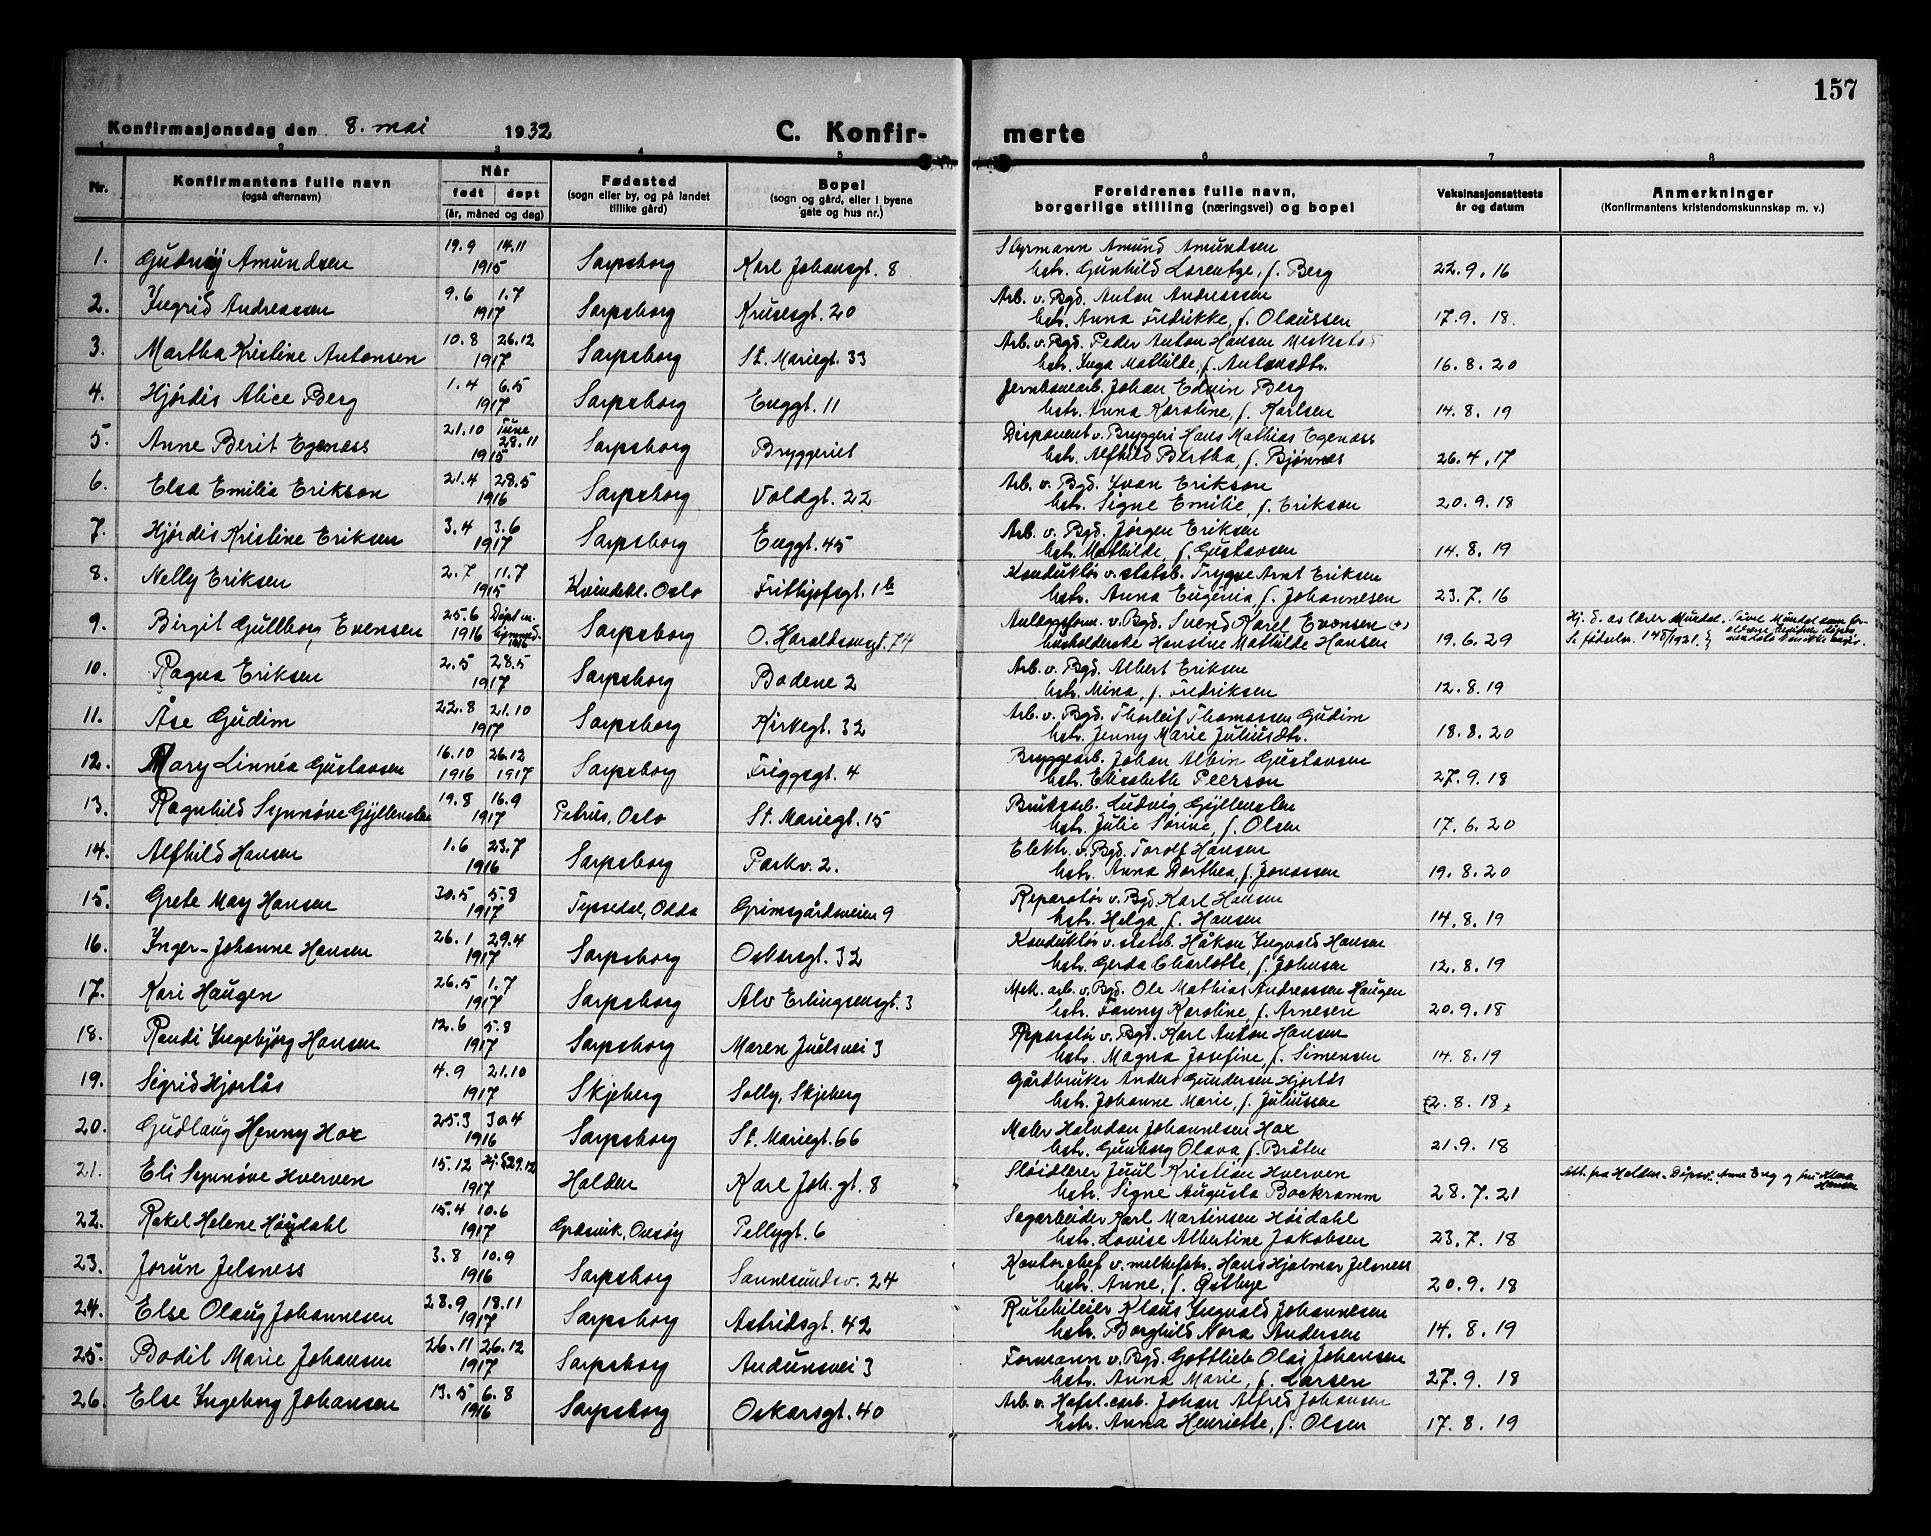 157
Konfirmasjonsdag den 8. mai 1932 C. Konfir- merte
1 2 3 4 5 6 7 8
Nr. Konfirmantens fulle navn (også efternavn) Når født døpt (år, måned og dag) Fødested (sogn eller by, og på landet tillike gård) Bopel (sogn og gård, eller i byene gate og hus nr.) Foreldrenes fulle navn, borgerlige stilling (næringsvei) og bopel Vaksinasjonsattests år og datum Anmerkninger (Konfirmantens kristendomskunnskap m. v.)
1. Gudny Amundsen 19.9 14.11 1915 Sarpsborg Karl Johansgt. 8 Styrmann Amund Amundsen
hstr. Gunhild Lorentze, f. Berg 22.9.16
2. Ingrid Andreassen 9.6 1.7 1917 Sarpsborg Krusesgt. 20 Arb. v. Bgd. Anton Andreassen
hstr. Anna Fredrikke, f. Olaussen 17.9.18.
3. Martha Kristine Antonsen 10.8 26.12 1917 Sarpsborg St. Mariegt. 33 Arb. v. Bgd. Peder Anton Hansen
hstr. Inga Mathilde, f. Antonsdtr. 16.8.20
4. Hjørdis Alice Berg 1.4 6.5 1917 Sarpsborg Enggt. 11 Jernbanearb. Johan Edvin Berg
hstr. Anna Karoline, f. Karlsen 14.8.19
5. Anne Berit Egenæss 21.10 Tune 28.11 1915 Sarpsborg Bryggeriet Disponent v. Bryggeri Hans Mathias Egenæss
hstr. Alfhild Bertha, f. Bjønnes 26.4.17
6. Elsa Emilia Erikson 21.4 28.5 1916 Sarpsborg Voldgt. 22 Arb. v. Bgd. Ivan Erikson
hstr. Signe Emilie, f. Erikson 20.9.18
7. Hjørdis Kristine Eriksen 3.4 3.6 1917 Sarpsborg Enggt. 45 Arb. v. Bgd. Jørgen Eriksen
hstr. Mathilde, f. Gustavsen 14.8.19
8. Nelly Eriksen 2.7 11.7 1915 Kvindekl. Oslo Frithjofsgt. 1b Konduktør v. statsb. Trygve Arnt Eriksen
hstr. Anna Eugenia, f. Johannesen 23.7.16
9. Birgit Gullborg Evensen 25.6 1916 Døpt 1916 Sarpsborg O. Haraldsonsgt. 74 Anleggsform. v. Bgd. Svend Karel Evensen (+)
husholderske Hansine Mathilde Hansen 19.6.29 Hj. d. av lærer Mundal.
10. Ragna Eriksen 2.5 28.5 1917 Sarpsborg Bodene 2 Arb. v. Bgd. Albert Eriksen
hstr. Mina, f. Fredriksen 12.8.19
11. Åse Gudim 22.8 21.10 1917 Sarpsborg Kirkegt. 32 Arb. v. Bgd. Thorleif Thomassen Gudim
hstr. Jenny Marie Juliusdtr. 18.8.20
12. Mary Linnéa Gustavsen 16.10 1916 26.12 1917 Sarpsborg Friggsgt. 4 Bryggearb. Johan Albin Gustavsen
hstr. Elisabeth Peerson 27.9.18
13. Ragnhild Synnøve Gyllensten 19.8 16.9 1917 Petrus, Oslo St. Mariegt. 15 Bruksarb. Ludvig Gyllensten
hstr. Julie Sørine, f. Olsen 17.6.20
14. Alfhild Hansen 1.6 23.7 1916 Sarpsborg Parkv. 2. Elektr. v. Bgd. Torolf Hansen
hstr. Anna Dorthea, f. Jonassen 19.8.20
15. Grete May Hansen 30.5 5.8 1917 Tyssedal, Odda Grimsgårdsveien 9 Reparatør v. Bgd Karl Hansen
hstr. Helga, f. Hansen 14.8.19
16. Inger-Johanne Hansen 26.1 29.4 1917 Sarpsborg Oskarsgt. 32 Konduktør v. statsb. Håkon Ingvald Hansen
hstr. Gerda Charlotte, f. Johnsen 12.8.19
17. Kari Haugen 26.5 1.7 1917 Sarpsborg Alv Erlingsensgt. 3 Mek. arb. v. Bgd. Ole Mathias Andreassen Haugen
hstr. Fanny Karoline, f. Arnesen 20.9.18
18. Randi Ingebjørg Hansen 12.6 5.8 1917 Sarpsborg Maren Juelsvei 3 Reparatør v. Bgd. Karl Anton Hansen
hstr. Magna Josefine, f. Simensen 14.8.19
19. Sigrid Hjortås 4.9 21.10 1917 Skjeberg Solly, Skjeberg Gårdbruker Anders Gundersen Hjortås
hstr. Johanne Marie, f. Juliussen 2.8.18
20. Gudlaug Henny Hox 25.3 30.4 1916 Sarpsborg St. Mariegt. 66 Maler Halvdan Johannesen Hox
hstr. Gunborg Olava, f. Bråten 21.9.18
21. Eli Synnøve Hverven 15.12 29.12 1917 Halden Karl Joh. gt. 8 Sløidlærer Juul Kristian Hverven
hstr. Signe Augusta Bockramm 28.7.21 Att. fra Halden.
22. Rakel Helene Høydahl 15.4 10.6 1917 Græsvik, Onsøy Pellygt. 6 Sagarbeider Karl Martinsen Høidahl
hstr. Lovise Albertine Jakobsen 23.7.18
23. Jorun Jelsness 3.8 10.9 1916 Sarpsborg Sannesundsv. 24 Kontorchef v. melkefabr. Hans Hjalmar Jelsness
hstr. Anne, f. Østbye 20.9.18
24. Else Olaug Johannesen 28.9 18.11 1917 Sarpsborg Astridsgt. 42 Rutebileier Klaus Ingvald Johannesen
hstr. Borghild Nora Andersen 14.8.19
25. Bodil Marie Johansen 26.11 26.12 1917 Sarpsborg Audunsvei 3 Formann v. Bgd. Gottlieb Olaj Johansen
hstr. Anna Marie, f. Larsen 27.9.18
26. Else Ingeborg Johansen 13.5 6.8 1916 Sarpsborg Oskarsgt. 40 Arb. v. Hafsl. carb. Johan Alfred Johansen
hstr. Anna Henriette, f. Olsen 17.8.19